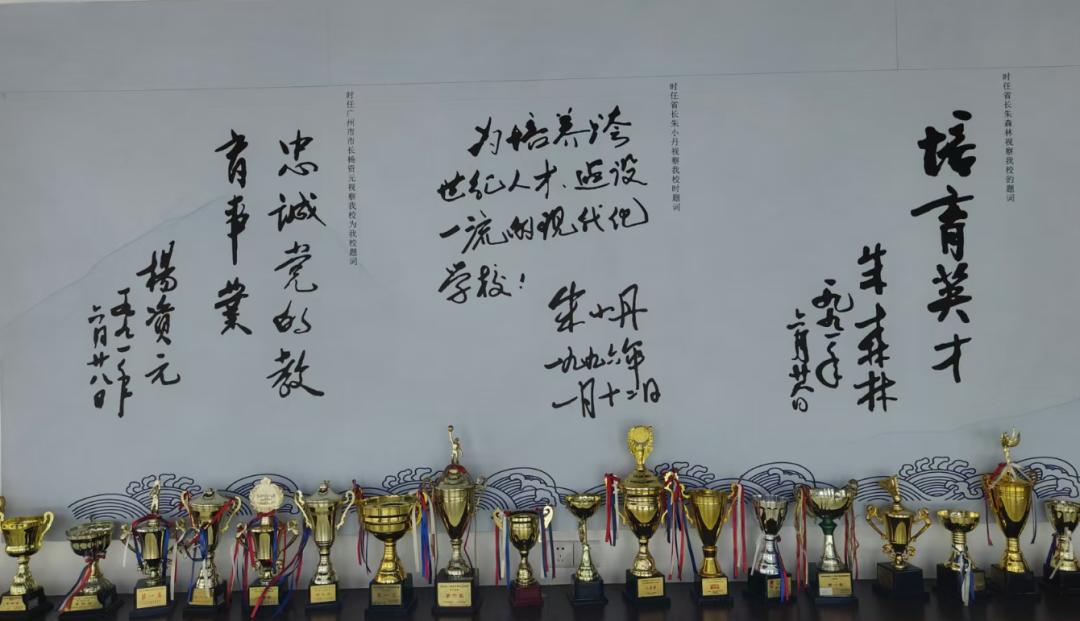 时任省长朱森林视察我校的题词
培育英才
朱森林
一九九一年
六月廿八日
时任省长朱小丹视察我校时题词
为培养跨
世纪人才、建设
一流的现代化
学校！
朱小丹
一九九六年
一月十二日
时任广州市市长杨资元视察我校为我校题词
忠诚党的教
育事业
楊資元
一九九一年
六月廿八日